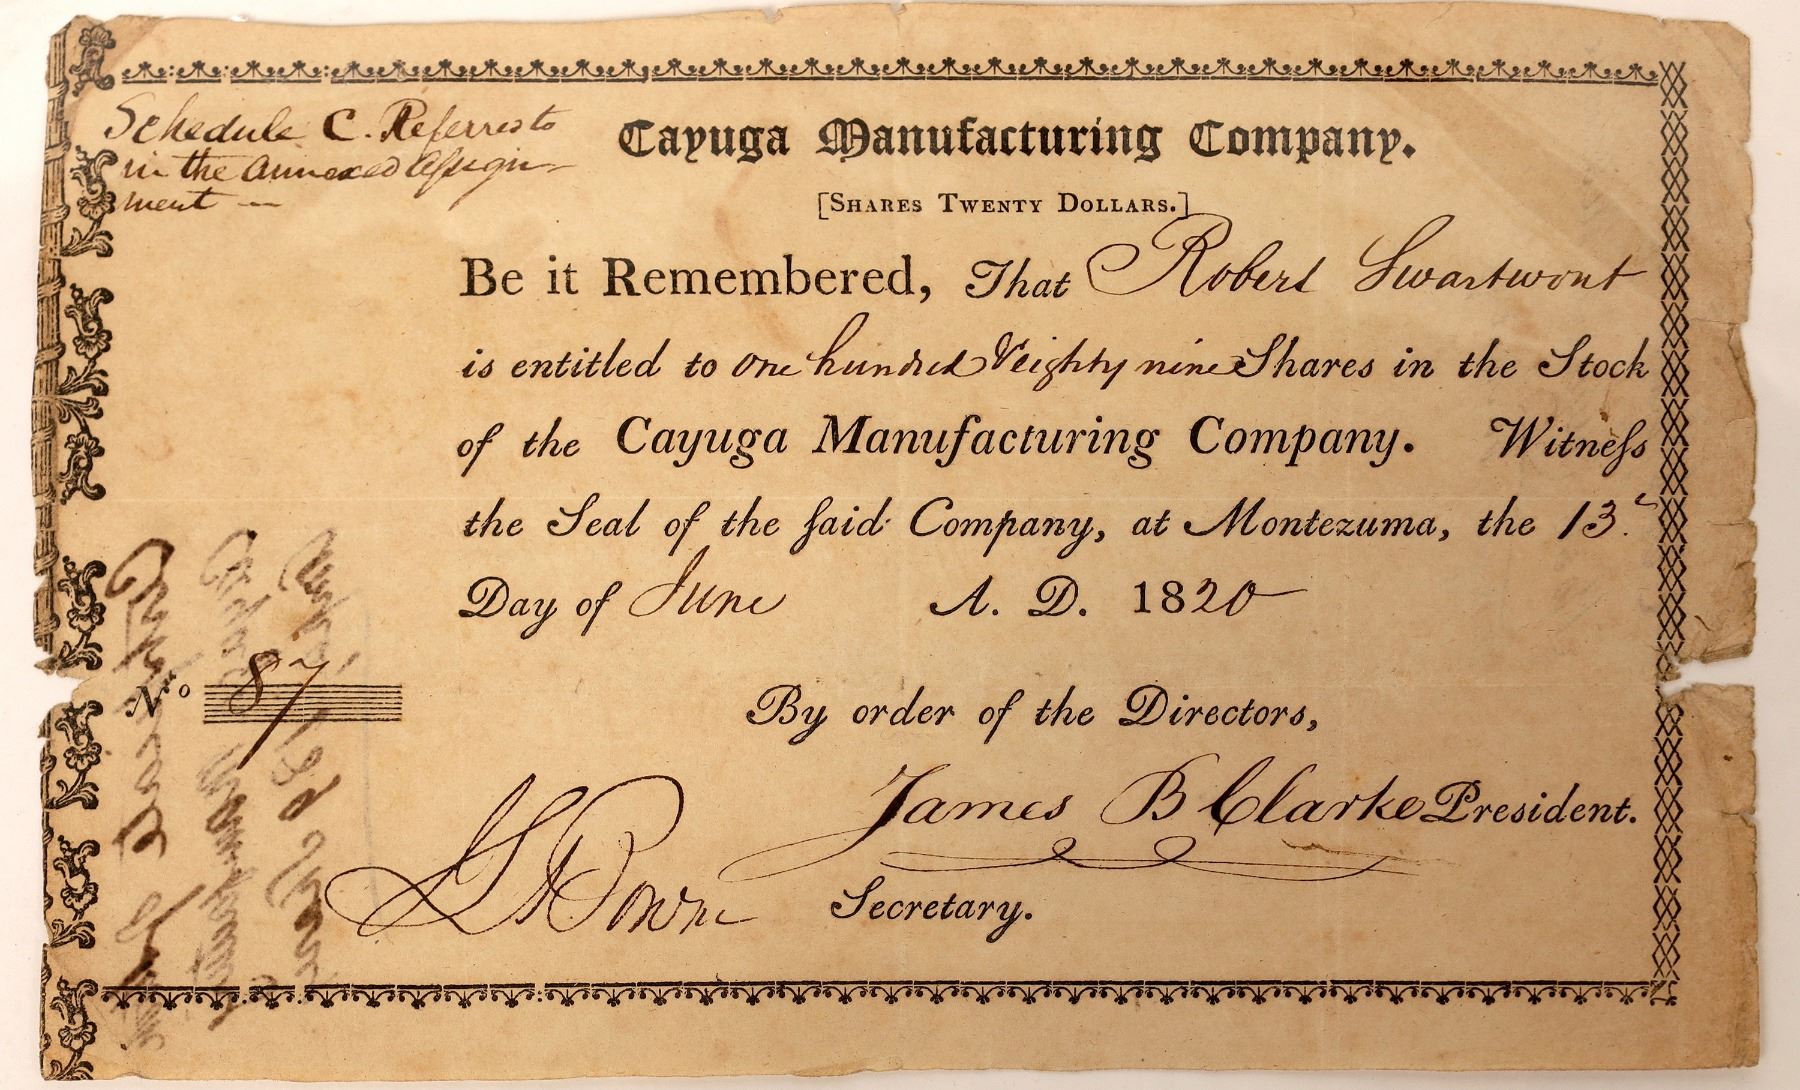 Schedule C. Referred to
in the annexed assign-
ment —
Cayuga Manufacturing Company.
[SHARES TWENTY DOLLARS.]
Be it Remembered, That Robert Swartwout
is entitled to one hundred & eighty nine Shares in the Stock
of the Cayuga Manufacturing Company. Witneſs
the Seal of the ſaid Company, at Montezuma, the 13.t
Day of June A. D. 1820
No 87
By order of the Directors,
James B Clarke President.
Secretary.